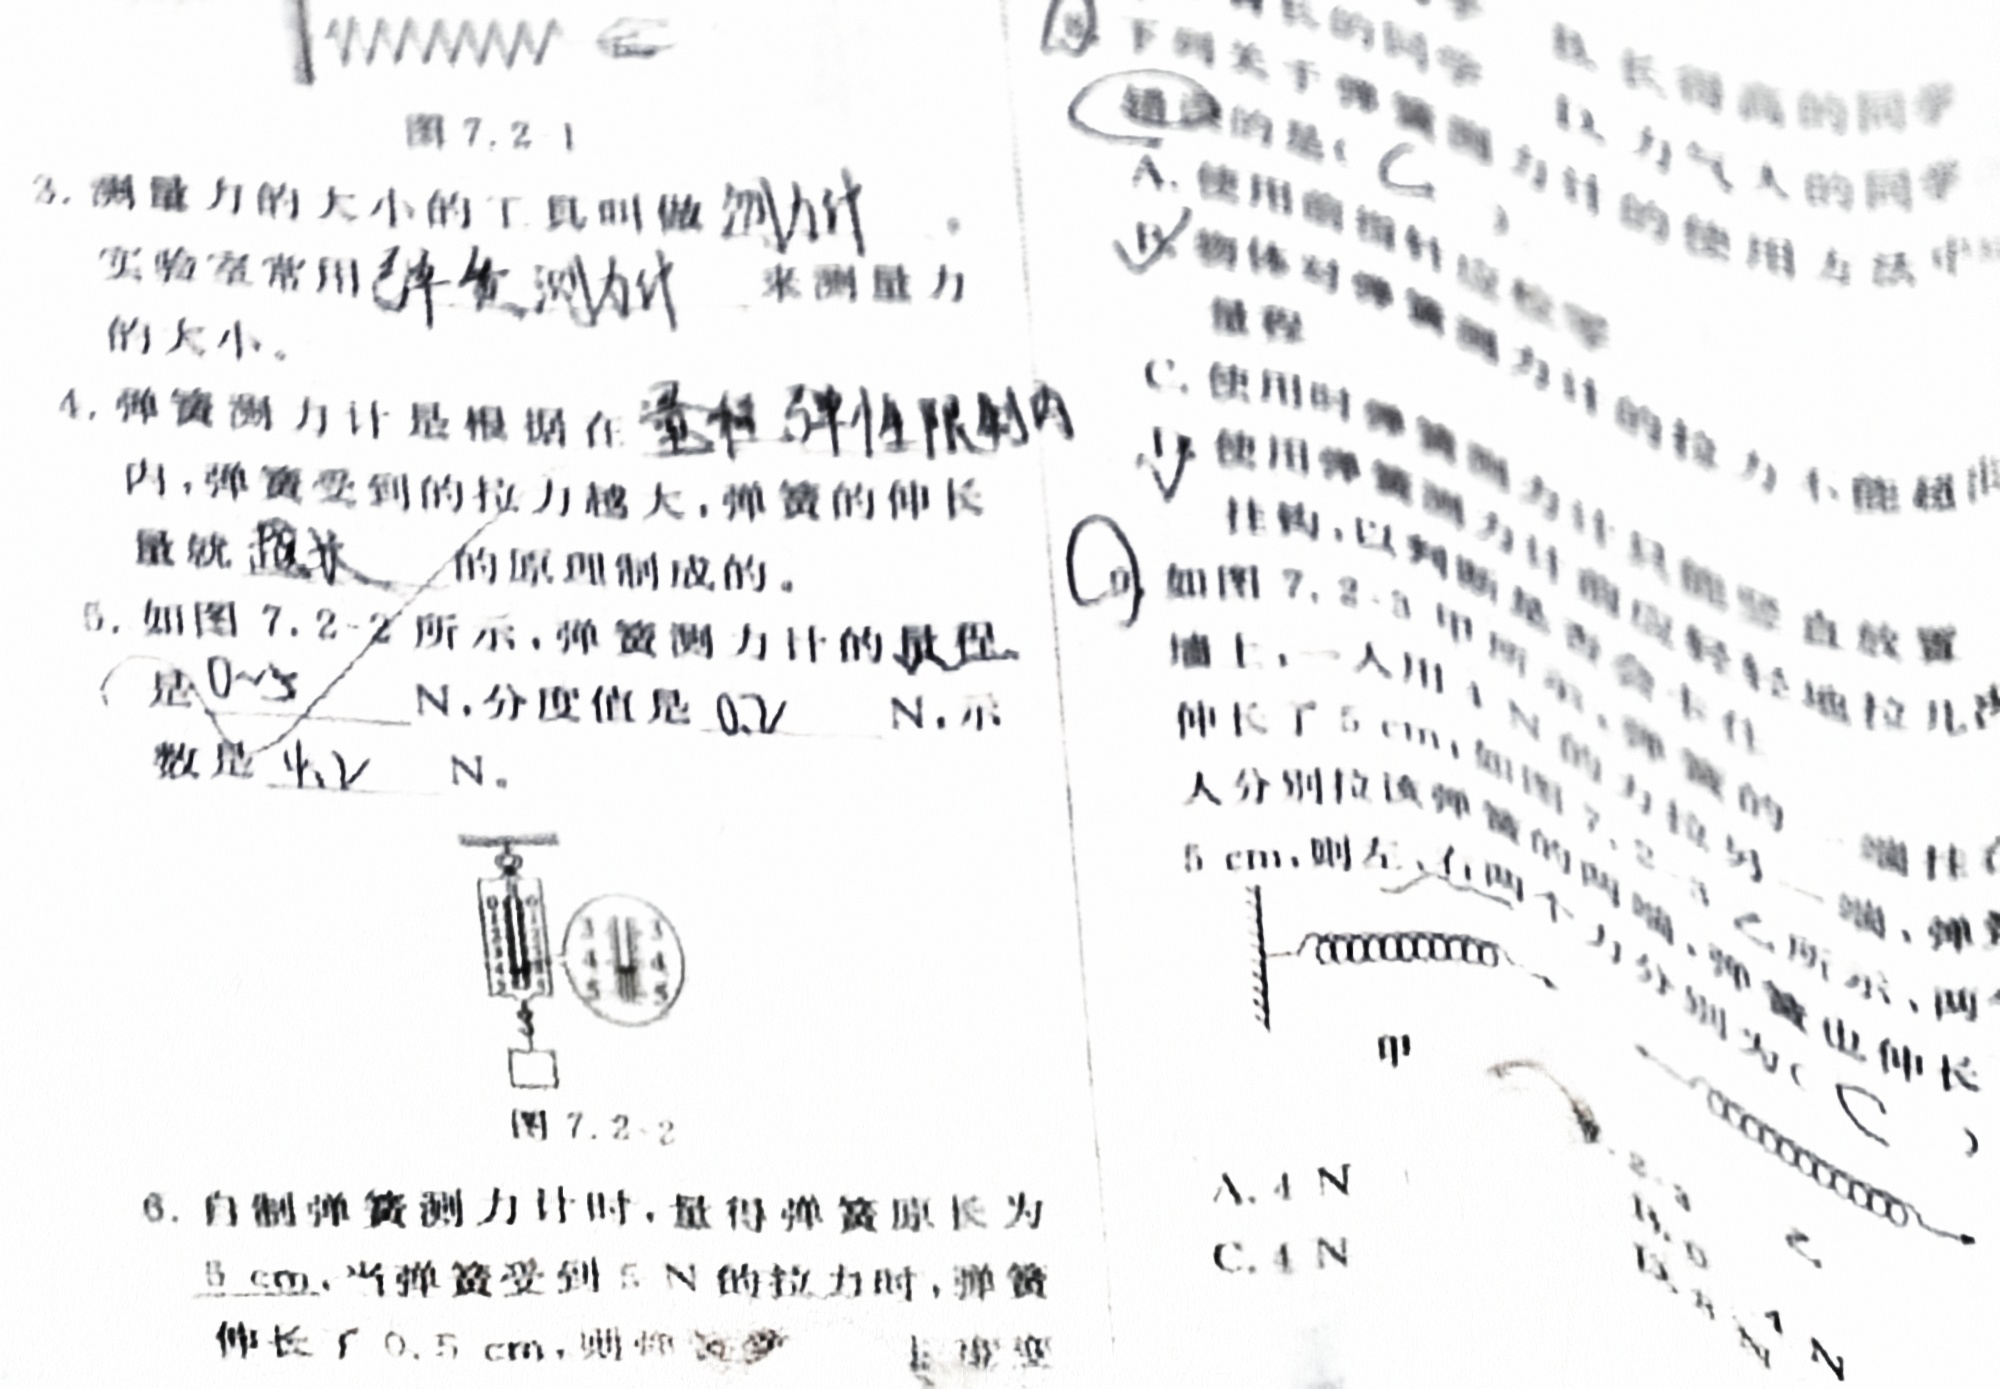 图 7.2-1
3. 测量力的大小的工具叫做 测力计 。
实验室常用 弹簧测力计 来测量力
的大小。
4. 弹簧测力计是根据在 量程 弹性限制内
内,弹簧受到的拉力越大,弹簧的伸长
量就 越长 的原理制成的。
5. 如图 7.2-2 所示,弹簧测力计的量程
是 0~5 N,分度值是 0.2 N,示
数是 4.2 N。
3 3
4 4
5 5
图 7.2-2
6. 自制弹簧测力计时,量得弹簧原长为
5 cm,当弹簧受到 5 N 的拉力时,弹簧
伸长了 0.5 cm,则弹
长的同学 B. 长得高的同学
D. 力气大的同学
下列关于弹簧测力计的使用方法中
错误的是( C )
A. 使用前指针应校零
B. 物体对弹簧测力计的拉力不能超出
量程
C. 使用时弹簧测力计只能竖直放置
D. 使用弹簧测力计前应轻轻地拉几次
挂钩,以判断是否会卡住
9. 如图 7.2-3 甲所示,弹簧的一端挂在
墙上,一人用 4 N 的力拉另一端,弹簧
伸长了 5 cm,如图 7.2-3 乙所示,两
人分别拉该弹簧的两端,弹簧也伸长
5 cm,则左、右两个力分别为( C )
甲
乙
A. 4 N
C. 4 N